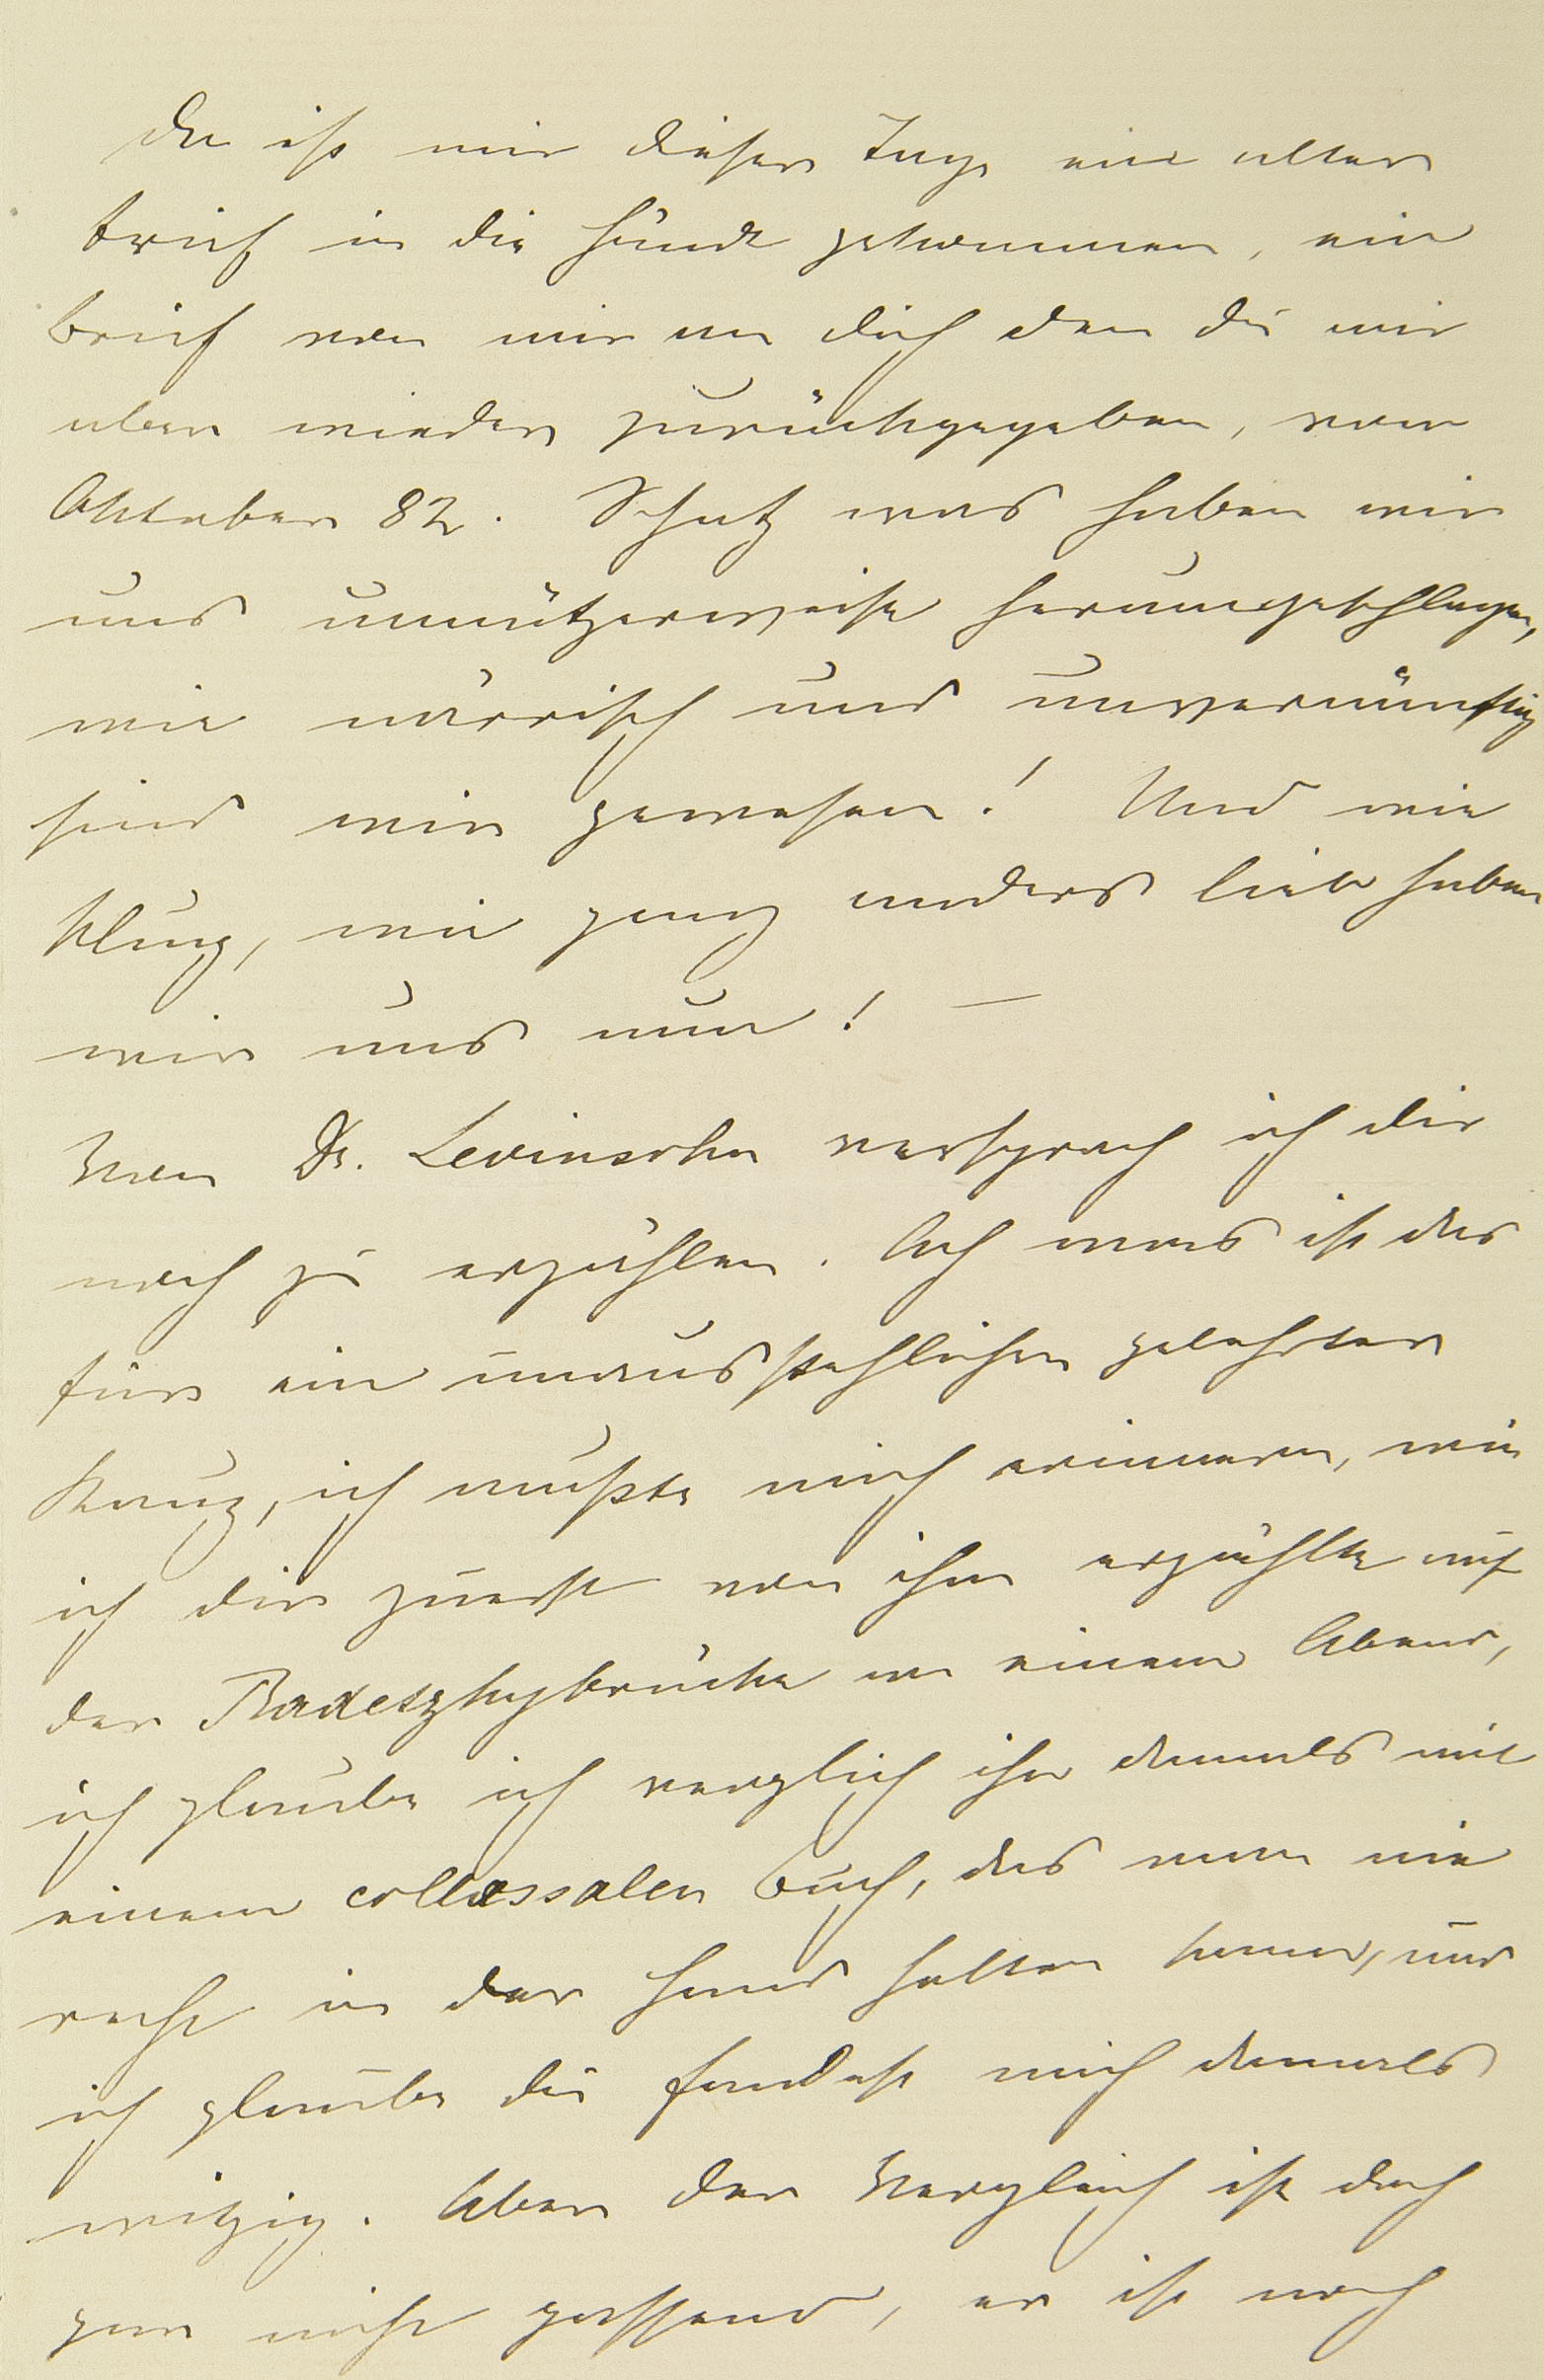 Da ist mir dieser Tage ein alter
Brief in die Hände gekommen, ein
Brief von mir an dich den du mir
aber wieder zurückgegeben, vom
Oktober 82. Schatz was haben wir
uns unnützerweise herumgeschlagen,
wie närrisch und unvernünftig
sind wir gewesen! Und wie
klug, wie ganz anders lieb haben
wir uns nun! —
Von Dr. Levinsohn versprach ich dir
noch zu erzählen. Ach was ist das
für ein unausstehlicher gelehrter
Kauz, ich mußte mich erinnern, wie
ich dir zuerst von ihm erzählte auf
der Radetzkybrücke an einem Abend,
ich glaube ich verglich ihn damals mit
einem collossalen Buch, das man nie
recht in der Hand halten kann, und
ich glaube du fandest mich damals
witzig. Aber der Vergleich ist doch
gar nicht passend, er ist noch